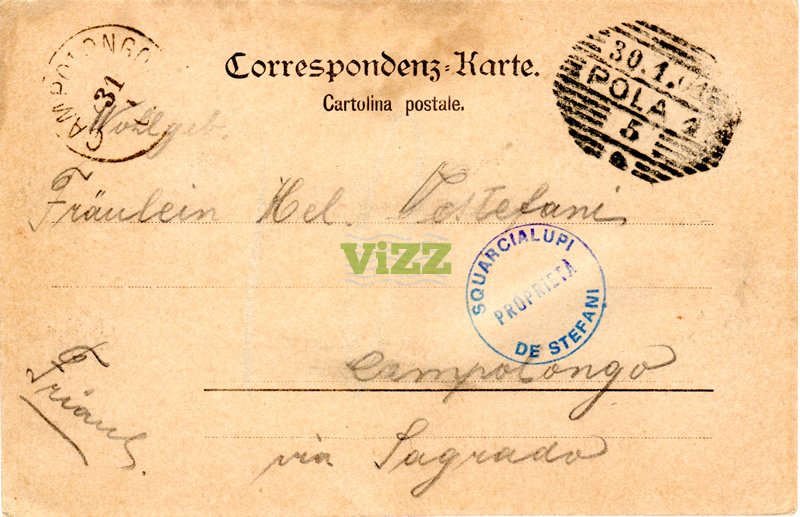 Correspondenz-Karte.
Cartolina postale.
CAMPOLONGO
31
30.1.01
POLA 1
5
Wohlgeb.
Fräulein Hel. Destefani
ViZZ
SQUARCIALUPI
PROPRIETÀ
DE STEFANI
Campolongo
via Sagrado
Friaul.